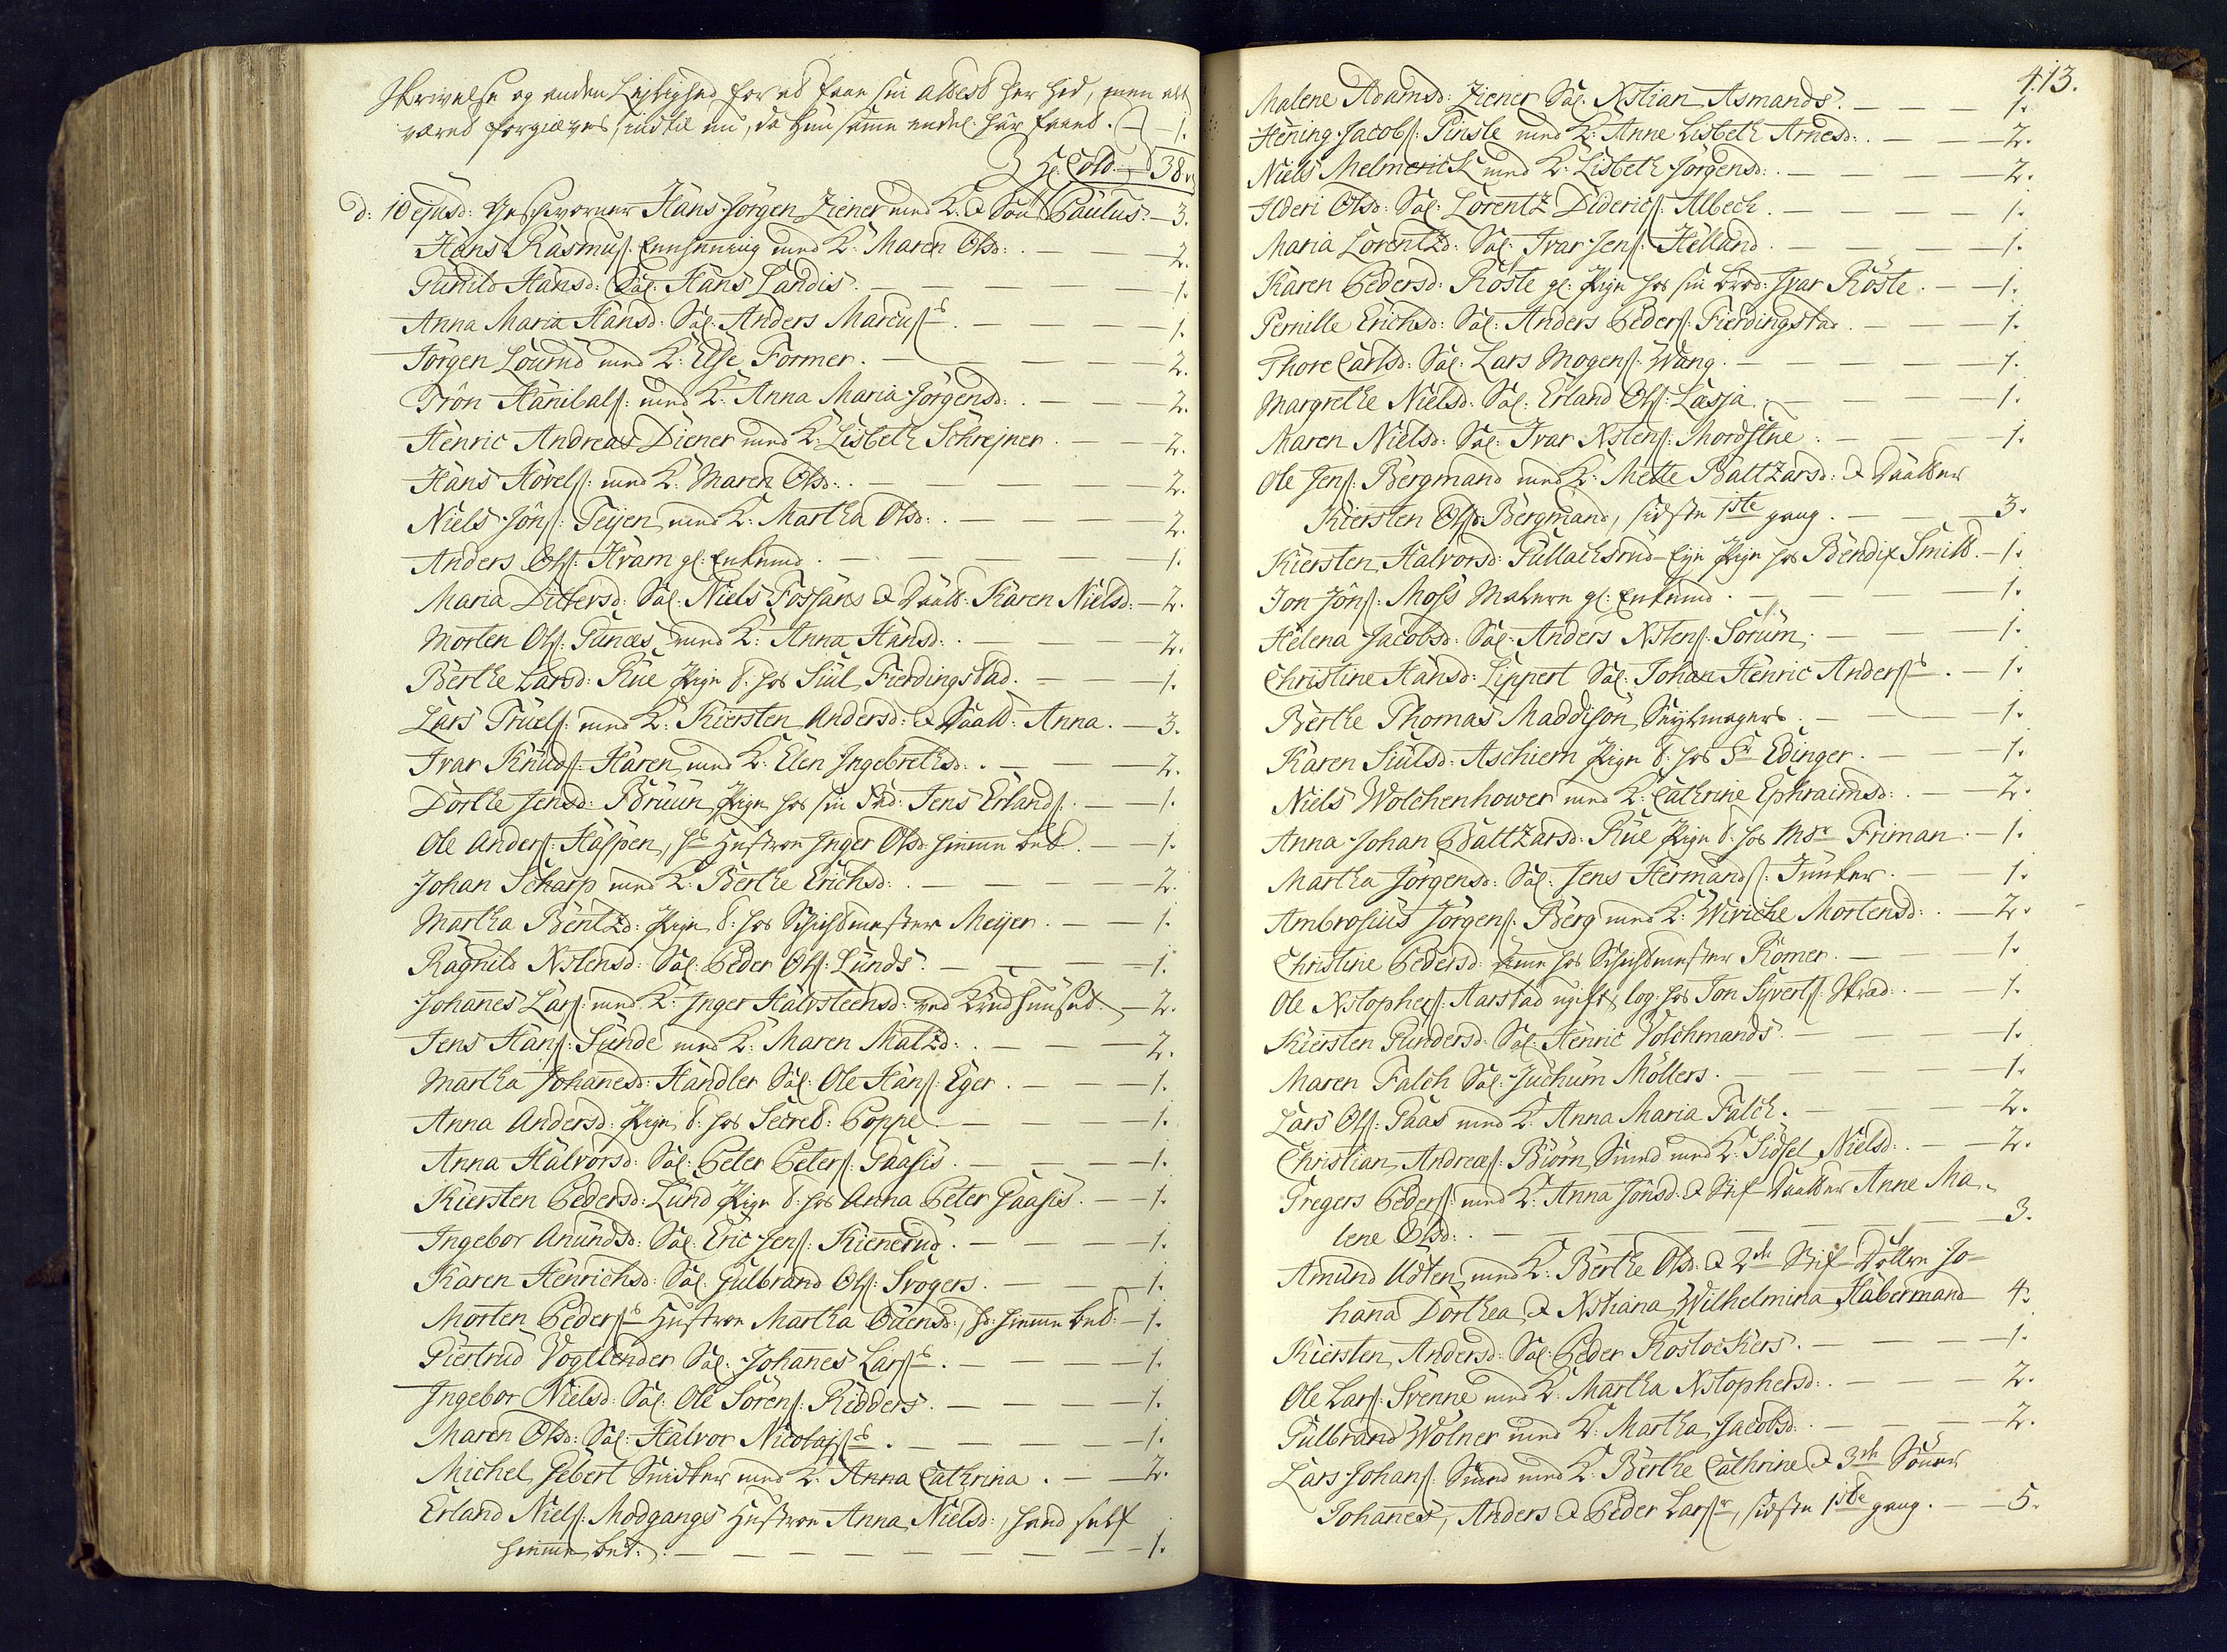 Skrivelse og anden Leylighed for at faae sin attest her hid, men alt
været forgiæves indtil nu, da hun samme endel. har faaet. — 1.
38.
d: 10 ejusd: Geschworner Hans Jörgen Ziener med K. & Sön Paulus — 3.
Hans Rasmusß: med K: Maren Olsd: . — — — 2.
Gunild Hansd: Sal: Hans Landis. — — — — 1.
Anna Maria Hansd: Sal: Anders Marcusß. — — — 1.
Jörgen Lourud med K: Else Former. — — — — 2.
Trön Hanibalß: med K: Anna Maria Jörgensd: . — — 2.
Henric Andreas Diener med K: Lisbeth Schrejner . — — 2.
Hans Hövelß: med K: Maren Olsd: . — — — — 2.
Niels Jönß: Teijen med K: Martha Olsd: . — — — 2.
Anders Olß: Hvam gl: Enkemd . — — — — 1.
Maria Dittersd: Sal: Niels Fossans & Daatt: Karen Nielsd: — 2.
Morten Olß: Funæs med K: Anna Hansd: . — — — 2.
Berthe Larsd: Rue Pige t: hos Siul Fierdingstad. — — 1.
Lars Truelß: med K: Kiersten Andersd: & Daatt: Anna. — 3.
Ivar Knudß: Haren med K: Elen Ingebrethsd: . — — 2.
Dorthe Jensd: Bruun Pige hos sin Fad: Jens Erlandß. — 1.
Ole Anderß: Haspen, hs Hustroe Inger Olsd: hiemme bet. — 1.
Johan Scharp med K: Berthe Erichsd: . — — — 2.
Martha Bentzd: Pige t: hos Schichtmester Meijer. — — 1.
Ragnild Xstensd: Sal: Peder Olß: Lunds. — — — 1.
Johanes Larß: med K: Inger Halvsteensd: ved Krudhuuset. — 2.
Jens Hanß: Sunde med K: Maren Matzd: . — — — 2.
Martha Johanesd: Handler Sal: Ole Hanß: Eger. — — 1.
Anna Andersd: Pige t: hos Secret: Poppe. — — — 1.
Anna Halvorsd: Sal: Peter Peterß: Gaasis. — — — 1.
Kiersten Pedersd: Lund Pige t: hos Anna Peter Gaasis. — 1.
Ingebor Anundsd: Sal: Eric Jenß: Kienerud. — — — 1.
Karen Henrichsd: Sal: Gulbrand Olß: Svogers. — — 1.
Morten Pederß Hustroe Martha Ouensd:, hs. hiemme bet. — 1.
Giertrud Vogtlender Sal: Johanes Larß. — — — 1.
Ingebor Nielsd: Sal: Ole Sörenß: Ridders. — — — 1.
Maren Olsd: Sal: Halvor Nicolajß. — — — 1.
Michel Gebert Snidker med K: Anna Cathrina. — — 2.
Erland Nielß: Modgangs Hustroe Anna Nielsd:, hand self
hiemme bet. — — — — — — — 1.
413.
Malene Adamsd: Ziener Sal: Xstian Asmands. — — — 1.
Hening Jacobß: Pinsle med K: Anne Lisbeth Arnesd: . — — 2.
Niels Helmerick med K: Lisbeth Jörgensd: . — — — 2.
Ilderi Olsd: Sal: Lorentz Didericß: Albech. — — — 1.
Maria Lorentzd: Sal: Ivar Jenß: Helland. — — — 1.
Karen Pedersd: Röste gl: Pige hos sin Brod: Ivar Röste. — 1.
Pernille Erichsd: Sal: Anders Pederß: Fierdingstad. — — 1.
Thore Carlsd: Sal: Lars Mogenß: Wang. — — — 1.
Margrethe Nielsd: Sal: Erland Olß: Lasja. — — — 1.
Karen Nielsd: Sal: Ivar Xstenß: Mordstue. — — — 1.
Ole Jenß: Bergmand med K: Mette Baltzarsd: & Daatter
Kiersten Olsd: Bergmand, sidste 1ste gang. — — — 3.
Kiersten Halvorsd: Gullachsrud Pige hos Bendix Smitt. — 1.
Jon Jönß: Moss Murere gl: Enkemd. — — — 1.
Helena Jacobsd: Sal: Anders Xstenß: Sörum. — — — 1.
Christine Hansd: Lippert Sal: Johan Henric Anderß. — 1.
Berthe Thomas Maddison Seylmagers. — — — 1.
Karen Siulsd: Aschiem Pige t: hos Sr Edinger. — — 1.
Niels Wolchenhower med K: Cathrine Ephraimsd: . — — 2.
Anna Johan Baltzarsd: Rue Pige t: hos Msr Friman. — 1.
Martha Jörgensd: Sal: Jens Hermandß: Junker. — — 1.
Ambrosius Jörgenß: Berg med K: Wiviche Mortensd: . — 2.
Christine Pedersd: hos Schichtmester Römer. — — 1.
Ole Xstopherß: Aarstad ugift, log: hos Jon Syvertß: Skræd: . — 1.
Kiersten Gundersd: Sal: Henric Volchmands. — — — 1.
Maren Falch Sal: Juchum Möllers. — — — — 1.
Lars Olß: Gaas med K: Anna Maria Falch. — — — 2.
Christian Andreæß: Biörn Smed med K: Sidsel Nielsd: . — 2.
Gregers Pederß: med K: Anna Jönsd: & Stif Daatter Anne Ma-
lene Olsd: . — — — — — — — 3.
Amund Udten med K: Berthe Olsd: & 2de Stif Döttre Jo-
hana Dorthea & Xstiana Wilhelmina Habermand 4.
Kiersten Andersd: Sal: Peder Rostockers. — — — 1.
Ole Larß: Svenne med K: Martha Xstophersd: . — — 2.
Gulbrand Wölner med K: Martha Jacobsd: . — — 2.
Lars Johanß: Smed med K: Berthe Cathrine & 3de Sönner
Johanes, Anders & Peder Larßr, sidste 1ste gang. — — 5.